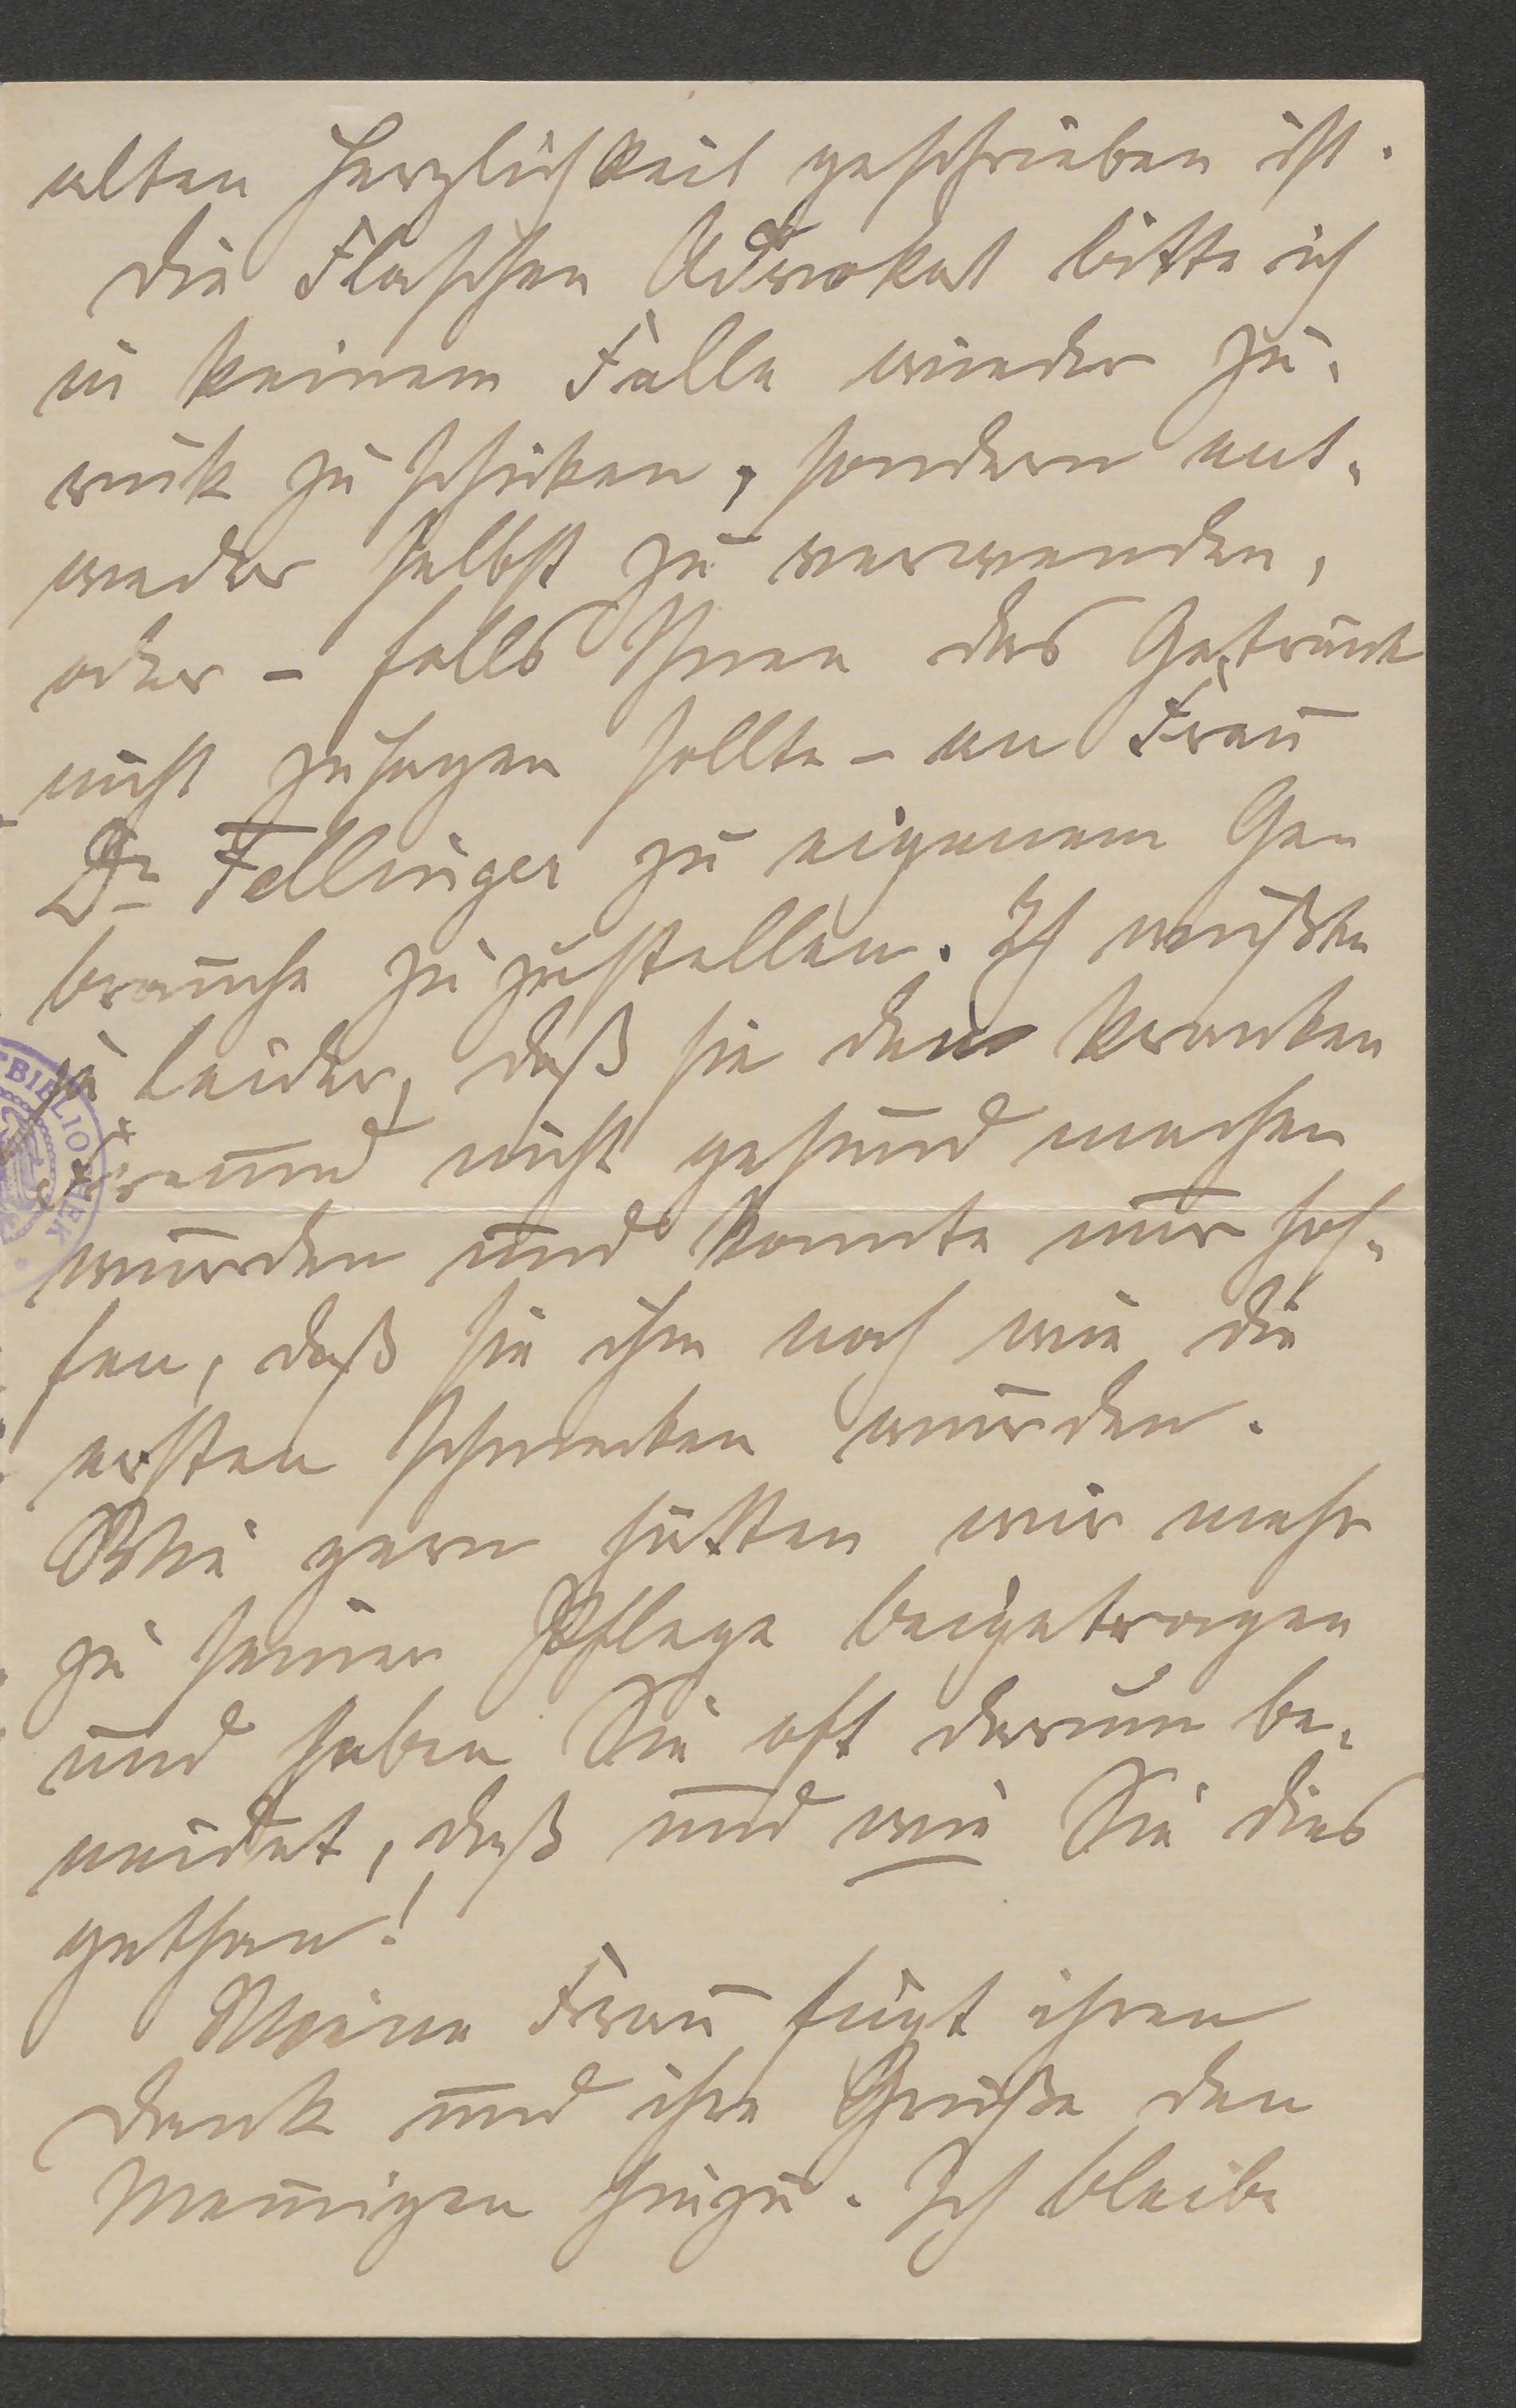 alten Herzlichkeit geschrieben ist.
Die Flaschen Advokat bitte ich
in keinem Falle wieder zu-
rück zu schicken, sondern ent-
weder selbst zu verwenden,
oder – falls Ihnen das Getränk
nicht zusagen sollte – an Frau
Dr Fellinger zu eigenem Ge-
brauche zuzustellen. Ich wußte
ja leider, daß sie den kranken
Freund nicht gesund machen
würden und konnte nur hof-
fen, daß sie ihm noch wie die
ersten schmecken würden.
Wie gern hätten wir mehr
zu seiner Pflege beigetragen
und haben Sie oft darum be-
neidet, daß und wie Sie dies
gethan!
Meine Frau fügt ihren
Dank und ihre Grüße den
Meinigen hinzu. Ich bleibe
BIBLIOTHEK